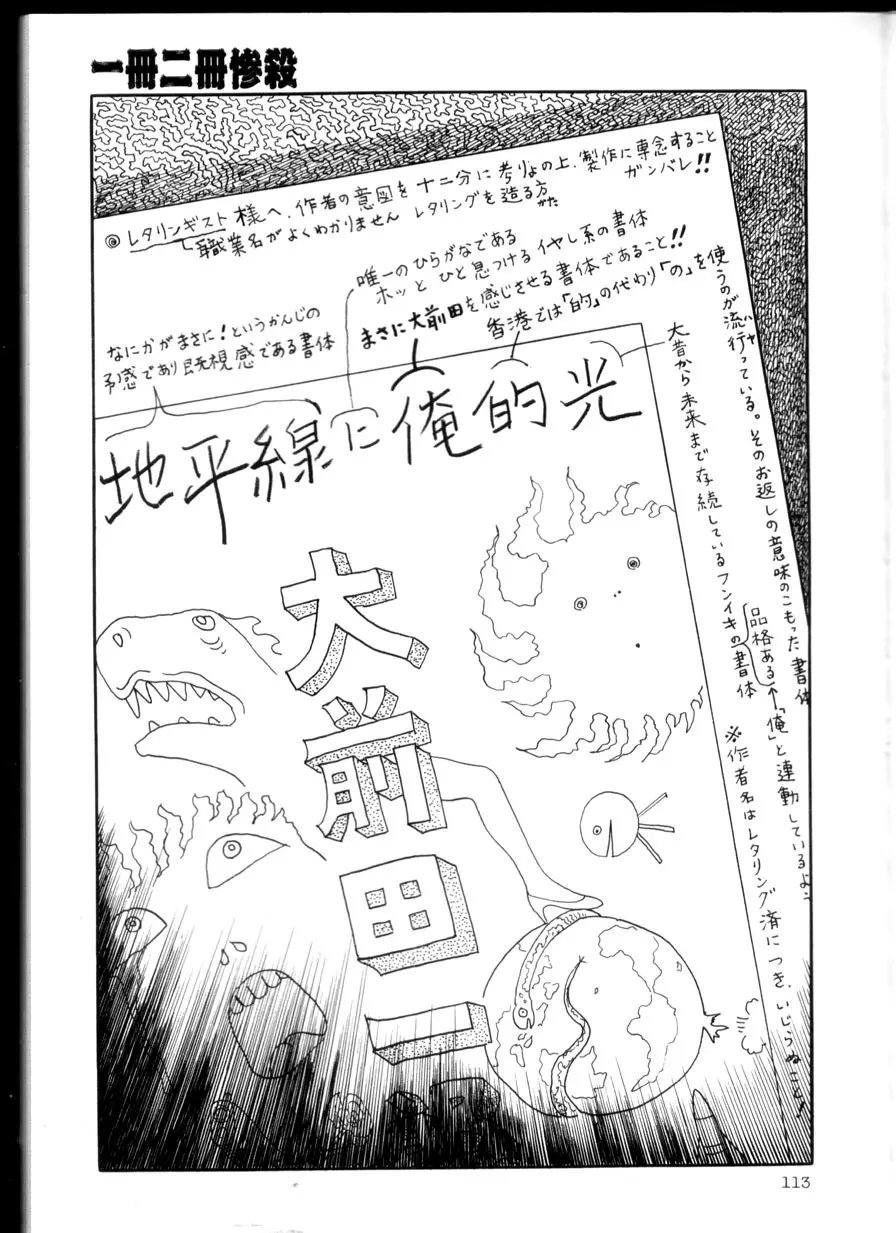 一冊二冊惨殺
◎レタリンギスト様へ、作者の意図を十二分に考りょの上、製作に専念すること
ガンバレ!!
職業名がよくわかりません レタリングを造る方
がた
唯一のひらがなである
ホッとひと息つけるイヤし系の書体
まさに大前田を感じさせる書体であること!!
香港では「的」の代わり「の」を使
うのが流行っている。そのお返しの意味のこもった書体
ハヤ
なにかがまさに!というかんじの
予感であり既視感である書体
大昔から未来まで存続しているフンイキの書体
品格ある←「俺」と連動しているよ
地平線に俺的光
大前田一
※作者名はレタリング済につき、いじらぬこと!
113